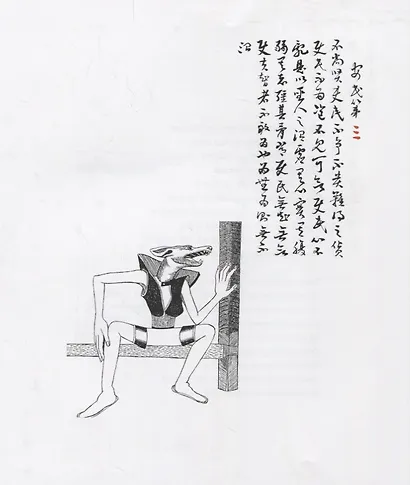 安民第三
不尚賢使民不爭不貴難得之貨
使民不為盜不見可欲使民心不
亂是以聖人之治虛其心實其腹
弱其志強其骨常使民無知無欲
使夫智者不敢為也為無為則無不
治